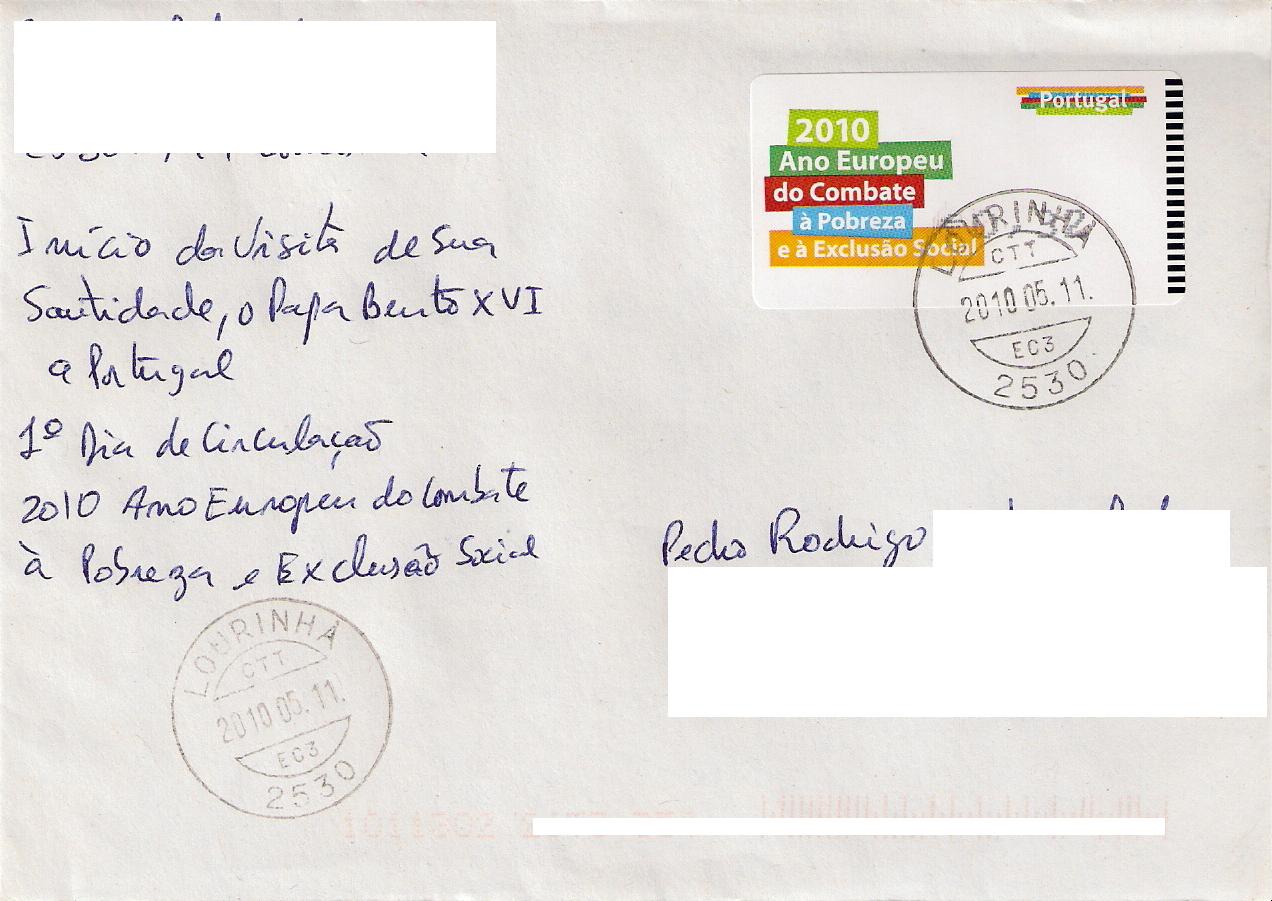 Início da Visita de Sua
Santidade, o Papa Bento XVI
a Portugal
1º Dia de Circulação
2010 Ano Europeu do Combate
à Pobreza e Exclusão Social
LOURINHÃ
CTT
2010.05.11.
EC3
2530
Portugal
2010
Ano Europeu
do Combate
à Pobreza
e à Exclusão Social
LOURINHÃ
CTT
2010.05.11.
EC3
2530
Pedro Rodrigo